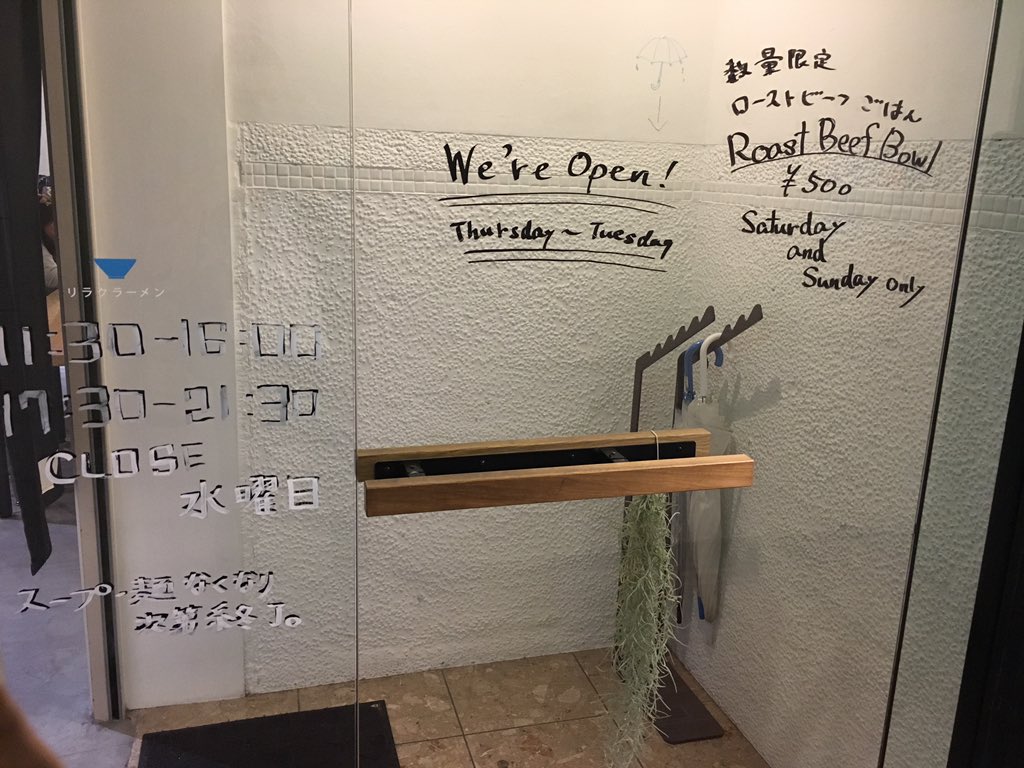 リラクラーメン
11:30-16:00
17:30-21:30
CLOSE
水曜日
スープ・麺なくなり
次第終了。
We're Open!
Thursday~Tuesday
数量限定
ローストビーフごはん
Roast Beef Bowl
¥500
Saturday
and
Sunday only